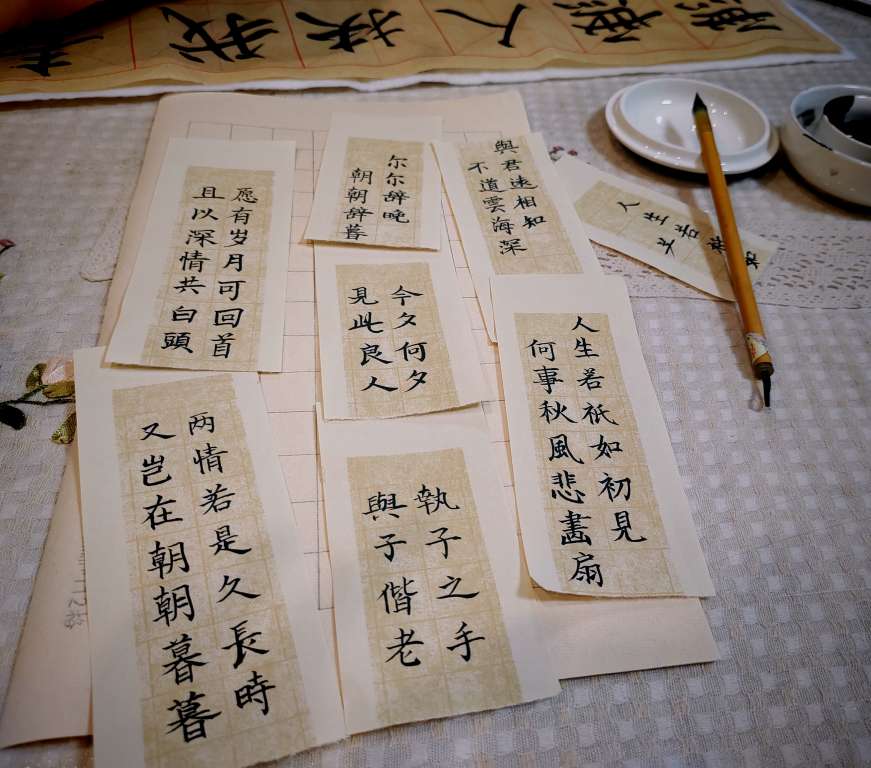 無人扶我
愿有岁月可回首
且以深情共白頭
尔尔辞晚
朝朝辞暮
與君遠相知
不道雲海深
人生若
今夕何夕
見此良人
人生若祇如初見
何事秋風悲畫扇
两情若是久長時
又岂在朝朝暮暮
執子之手
與子偕老